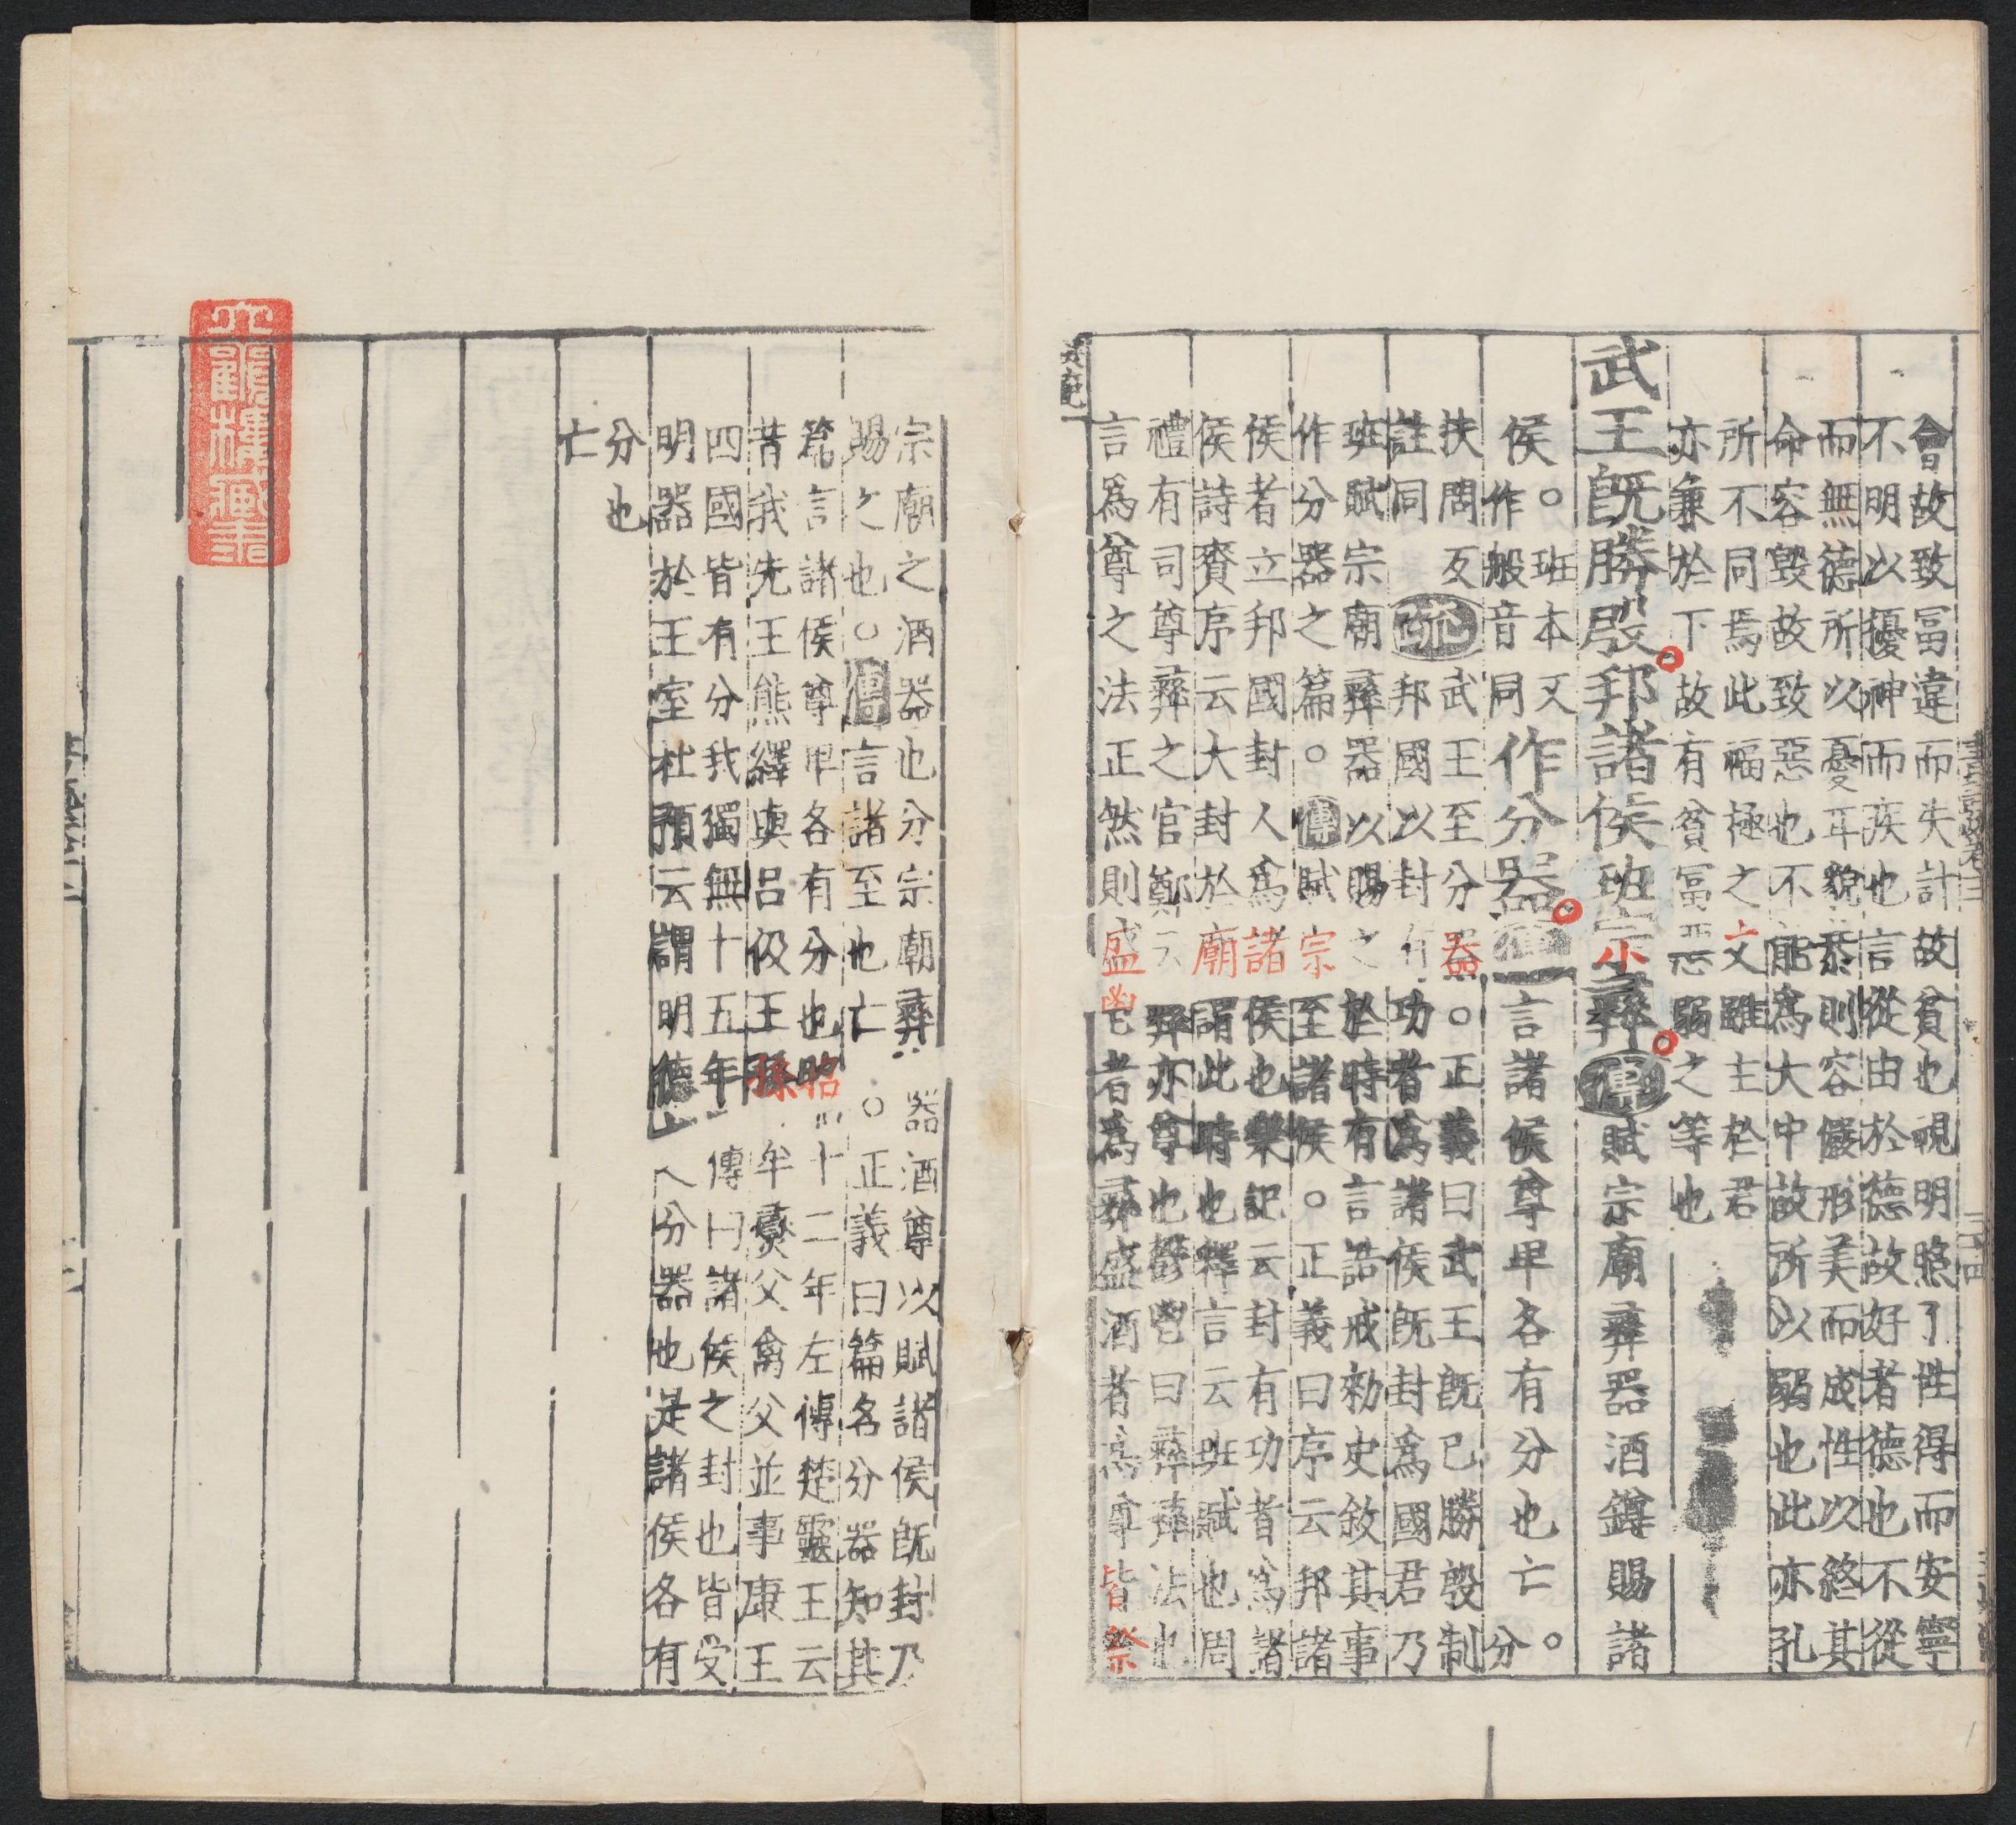 會故致冨違而失計故貧也視明照了性得而安寧
不明以擾神而疾也言從由於德故好者德也不從
而無德所以憂耳貌恭則容儼形美而成性以終其
命容毀故致惡也不能為大中故所以弱也此亦孔
所不同焉此福極之文雖主於君
亦兼於下故有貧冨惡弱之等也
武王旣勝殷邦諸侯班宗彝傳賦宗廟彝器酒鐏賜諸
侯。班本又
作般音同作分器言諸侯尊卑各有分也亡。分
扶問反疏武王至分器。正義曰武王旣已勝殷制
註同邦國以封有功者為諸侯旣封爲國君乃
班賦宗廟彝器以賜之於時有言誥戒勑史敘其事
作分器之篇。傳賦宗至諸侯。正義曰序云邦諸
侯者立邦國封人爲諸侯也樂記云封有功者爲諸
侯詩賚序云大封於廟謂此時也釋言云班賦也周
禮有司尊彝之官鄭云彝亦尊也鬱鬯曰彝彝法也
言爲尊之法正然則盛鬯者為彝盛酒者爲尊皆祭
宗廟之酒器也分宗廟彝器酒尊以賦諸侯旣封乃
賜之也。傳言諸至也亡。正義曰篇名分器知其
篇言諸侯尊卑各有分也昭十二年左傳楚靈王云
昔我先王熊繹與呂伋王孫牟燮父禽父並事康王
四國皆有分我獨無十五年傳曰諸侯之封也皆受
明器於王室杜預云謂明德之分器也是諸侯各有
分也
亡